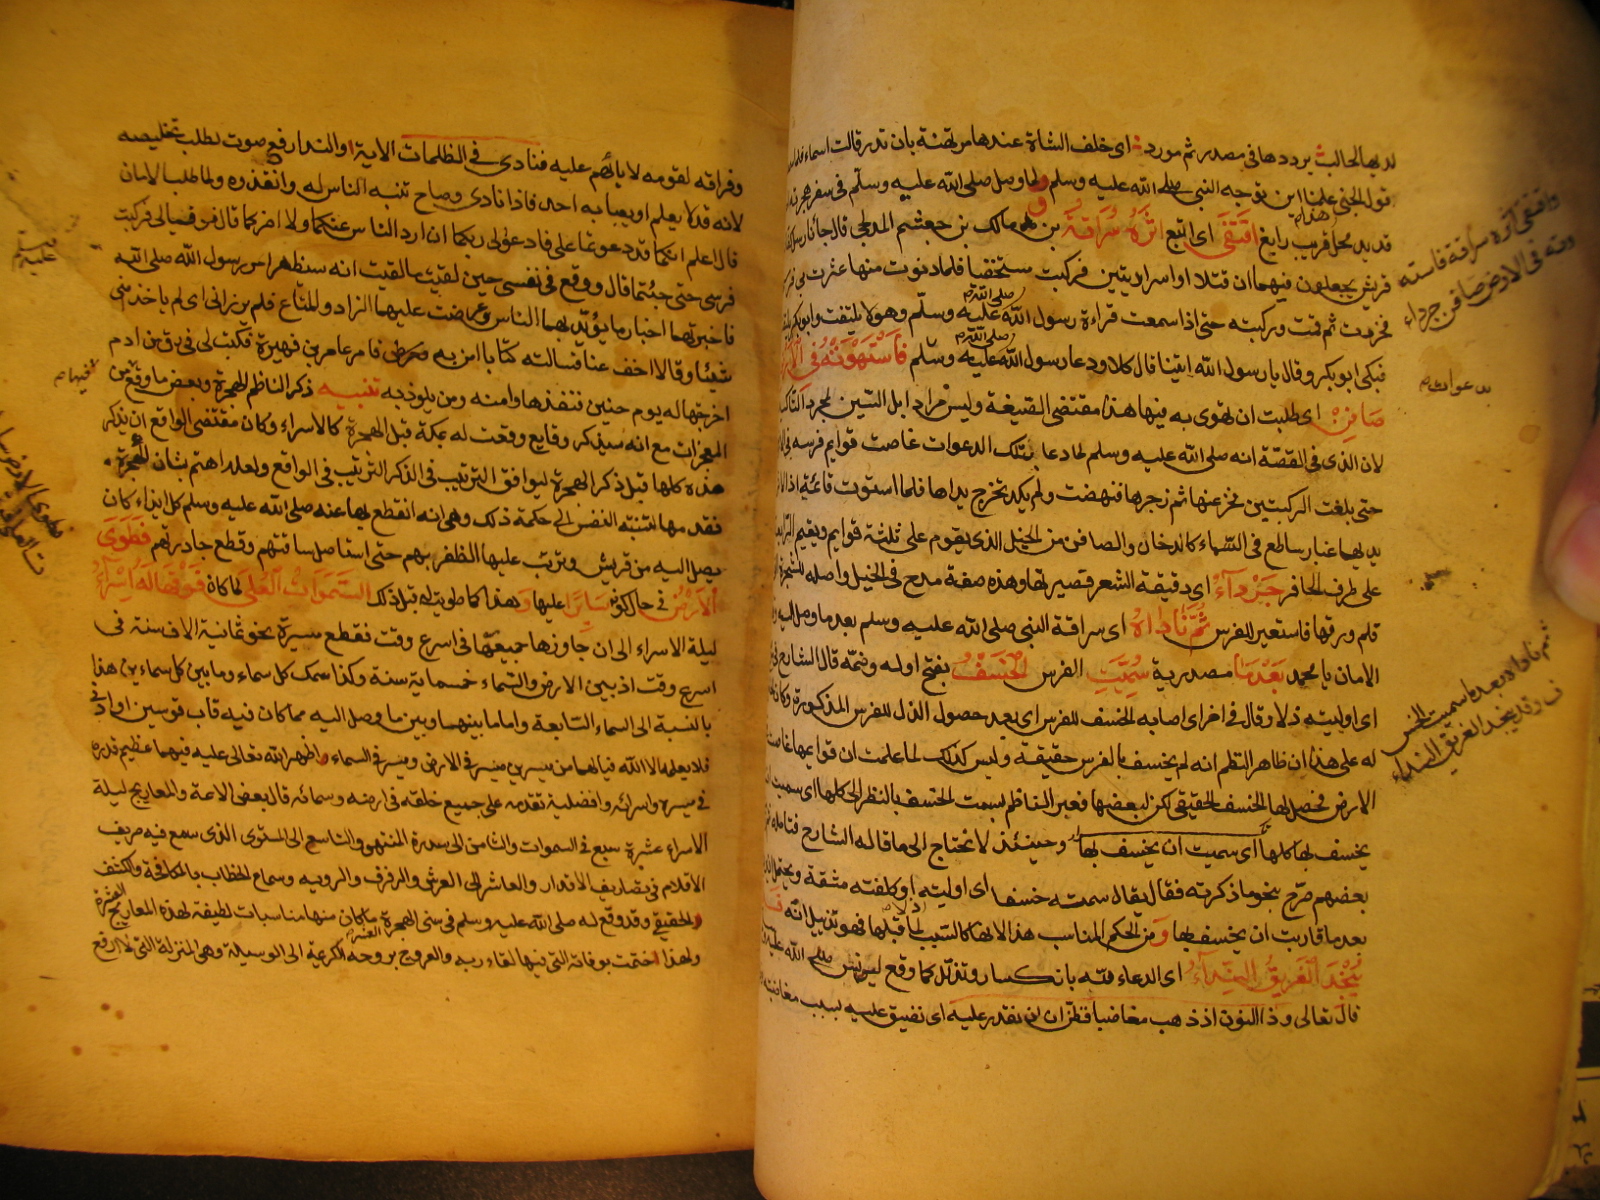 لديها لحالب يرددها في مصدر ثم مورد اي خلف الشاة عندها مرتهنة بان تدر قالت اسماء فلما
قول الجني علمنا اين توجه النبي صلى الله عليه وسلم ولما وصل صلى الله عليه وسلم في سفر هجرته
قديد محل قريب رابغ اقتفى اي اتبع اثره سراقة بن مالك بن جعشم المدلجي قال جانا رسل
قريش يجعلون فيهما ان قتلا او اسرا ديتين فركبت مستخفيا فلما دنوت منهما عثرت بي فرسي
فخررت ثم قمت وركبته حتى اذا سمعت قراءة رسول الله صلى الله عليه وسلم وهو لا يلتفت وابو بكر
فبكى ابو بكر وقال يا رسول الله اتينا قال كلا ودعا رسول الله صلى الله عليه وسلم فاستهوته في الارض
صافن اي طلبت ان تهوى به فيها هذا مقتضى الصيغة وليس مرادا بل السين لمجرد التاكيد
لان الذي في القصة انه صلى الله عليه وسلم لما دعا بتلك الدعوات غاصت قوايم فرسه في
حتى بلغت الركبتين فخر عنها ثم زجرها فنهضت ولم يكد تخرج يداها فلما استوت قائمة اذا
يديها غبار ساطع في السماء كالدخان والصافن من الخيل الذي يقوم على ثلثة قوايم ويقيم الرابعة
على طرف الحافر جرداء اي دقيقة الشعر قصيرتها وهذه صفة مدح في الخيل واصله للشجرة
قلم ورقها فاستعير للفرس ثم ناداه اي سراقة النبي صلى الله عليه وسلم بعد ما وصل اليه
الامان يا محمد بعدما مصدرية سميت الفرس الخسف بفتح اوله وضمه قال الشارح
اي اوليته ذلا وقال في اخرى اصابه الخسف للفرس اي بعد حصول الذل للفرس المذكورة وكان
له على هذا ان ظاهر النظم انه لم يخسف بالفرس حقيقة وليس كذلك لما علمت ان قوايمها غاصت
الارض فحصل لها الخسف الحقيقي لكن لبعضها فعبر الناظم بسميت الخسف بالنظر الى كلها اي سميت
يخسف بها كلها اي سميت ان يخسف بها وحينئذ لا نحتاج الى ما قاله الشارح فتامله
بعضهم صرح بنحو ما ذكرته فقال يقال سمته خسفا اي اوليته ذلا او كلفته مشقة ويحتمل
بعد ما قاربت ان يخسف بها ومن الحكم المناسب هذا لانها كالسبب لما قبلها فهو تذييل انه قد
ينجد الغريق النداء اي الدعاء فيه بانكسار وتذلل كما وقع ليونس صلى الله عليه
قال تعالى وذا النون اذ ذهب مغاضبا فظن ان لن نقدر عليه اي نضيق عليه بسبب مغاضبته
واقتفى اثره سراقة فاستهـ
ـوته في الارض صافن جرداء
بدعوات
ثم ناداه بعدما سميت الخسـ
ـف وقد ينجد الغريق النداء
وفراقه لقومه لايائهم عليه فنادى في الظلمات الاية او الندا رفع صوت لطلب تخليصه
لانه قد لا يعلم او يعبا به احد فاذا نادى وصاح تنبه الناس له وانقذوه ولما طلبا الامان
قال اعلم انكما قد دعوتما علي فادعوا لي ربكما ان ارد الناس عنكما ولا اضركما قال فوقفا لي فركبت
فرسي حتى جئتهما قال ووقع في نفسي حين لقيت ما لقيت انه سيظهر امر رسول الله صلى الله
فاخبرتهما اخبار ما يريد بهما الناس وعرضت عليهما الزاد والمتاع فلم يرزاني اي لم ياخذ مني
شيئا وقالا اخف عنا فسالته كتابا امن به فامر عامر بن فهيرة فكتب لي في رق من ادم
اخرجها له يوم حنين فنفذها وامنه ومن يلوذ به تنبيه ذكر الناظم الهجرة وبعض ما وقع من
المعجزات مع انه سيذكر وقايع وقعت له بمكة قبل الهجرة كالاسراء وكان مقتضى الواقع ان يذكر
هذه كلها قبل ذكر الهجرة ليوافق الترتيب في الذكر الترتيب في الواقع ولعله اهتم بشان الهجرة
فقدمها لتنبه النفس الى حكمة ذلك وهي انه انقطع بها عنه صلى الله عليه وسلم كل ايذاء كان
يصل اليه من قريش وترتب عليها الظفر بهم حتى استاصل ساقتهم وقطع جادرتهم فطوى
الارض في حال كونه سايرا عليها وهذا كما طويت له قبل ذلك السموات العلى لما كان فوقها له اسراء
ليلة الاسراء الى ان جاوزها جميعها في اسرع وقت فقطع مسيرة نحو ثمانية الاف سنة في
اسرع وقت اذ بين الارض والسماء خمسماية سنة وكذا سمك كل سماء وما بين كل سماءين هذا
بالنسبة الى السماء السابعة واما ما بينهما وبين ما وصل اليه مما كان فيه قاب قوسين او ادنى
فلا يعلمه الا الله فيا لهما من مسيرين مسير في الارض ومسير في السماء اظهر الله تعالى عليه فيهما عظيم قدره
في مسيره واسرائه وافضلية تقدمه على جميع خلقه في ارضه وسمائه قال بعض الائمة والمعاريج ليلة
الاسراء عشرة سبع في السموات والثامن الى سدرة المنتهى والتاسع الى المستوى الذي سمع فيه صريف
الاقلام في تصاريف الاقدار والعاشر الى العرش والرفرف والرويه وسماع الخطاب بالمكافحة والكشف
الحقيقي وقد وقع له صلى الله عليه وسلم في سني الهجرة العشرة ما كان منها مناسبات لطيفة لهذه المعاريج العشرة
ولهذا اختتمت بوفاته التي فيها لقاء ربه والعروج بروحه الكريمة الى الوسيلة وهي المنزلة التي لا ارفع
عليه وسلم